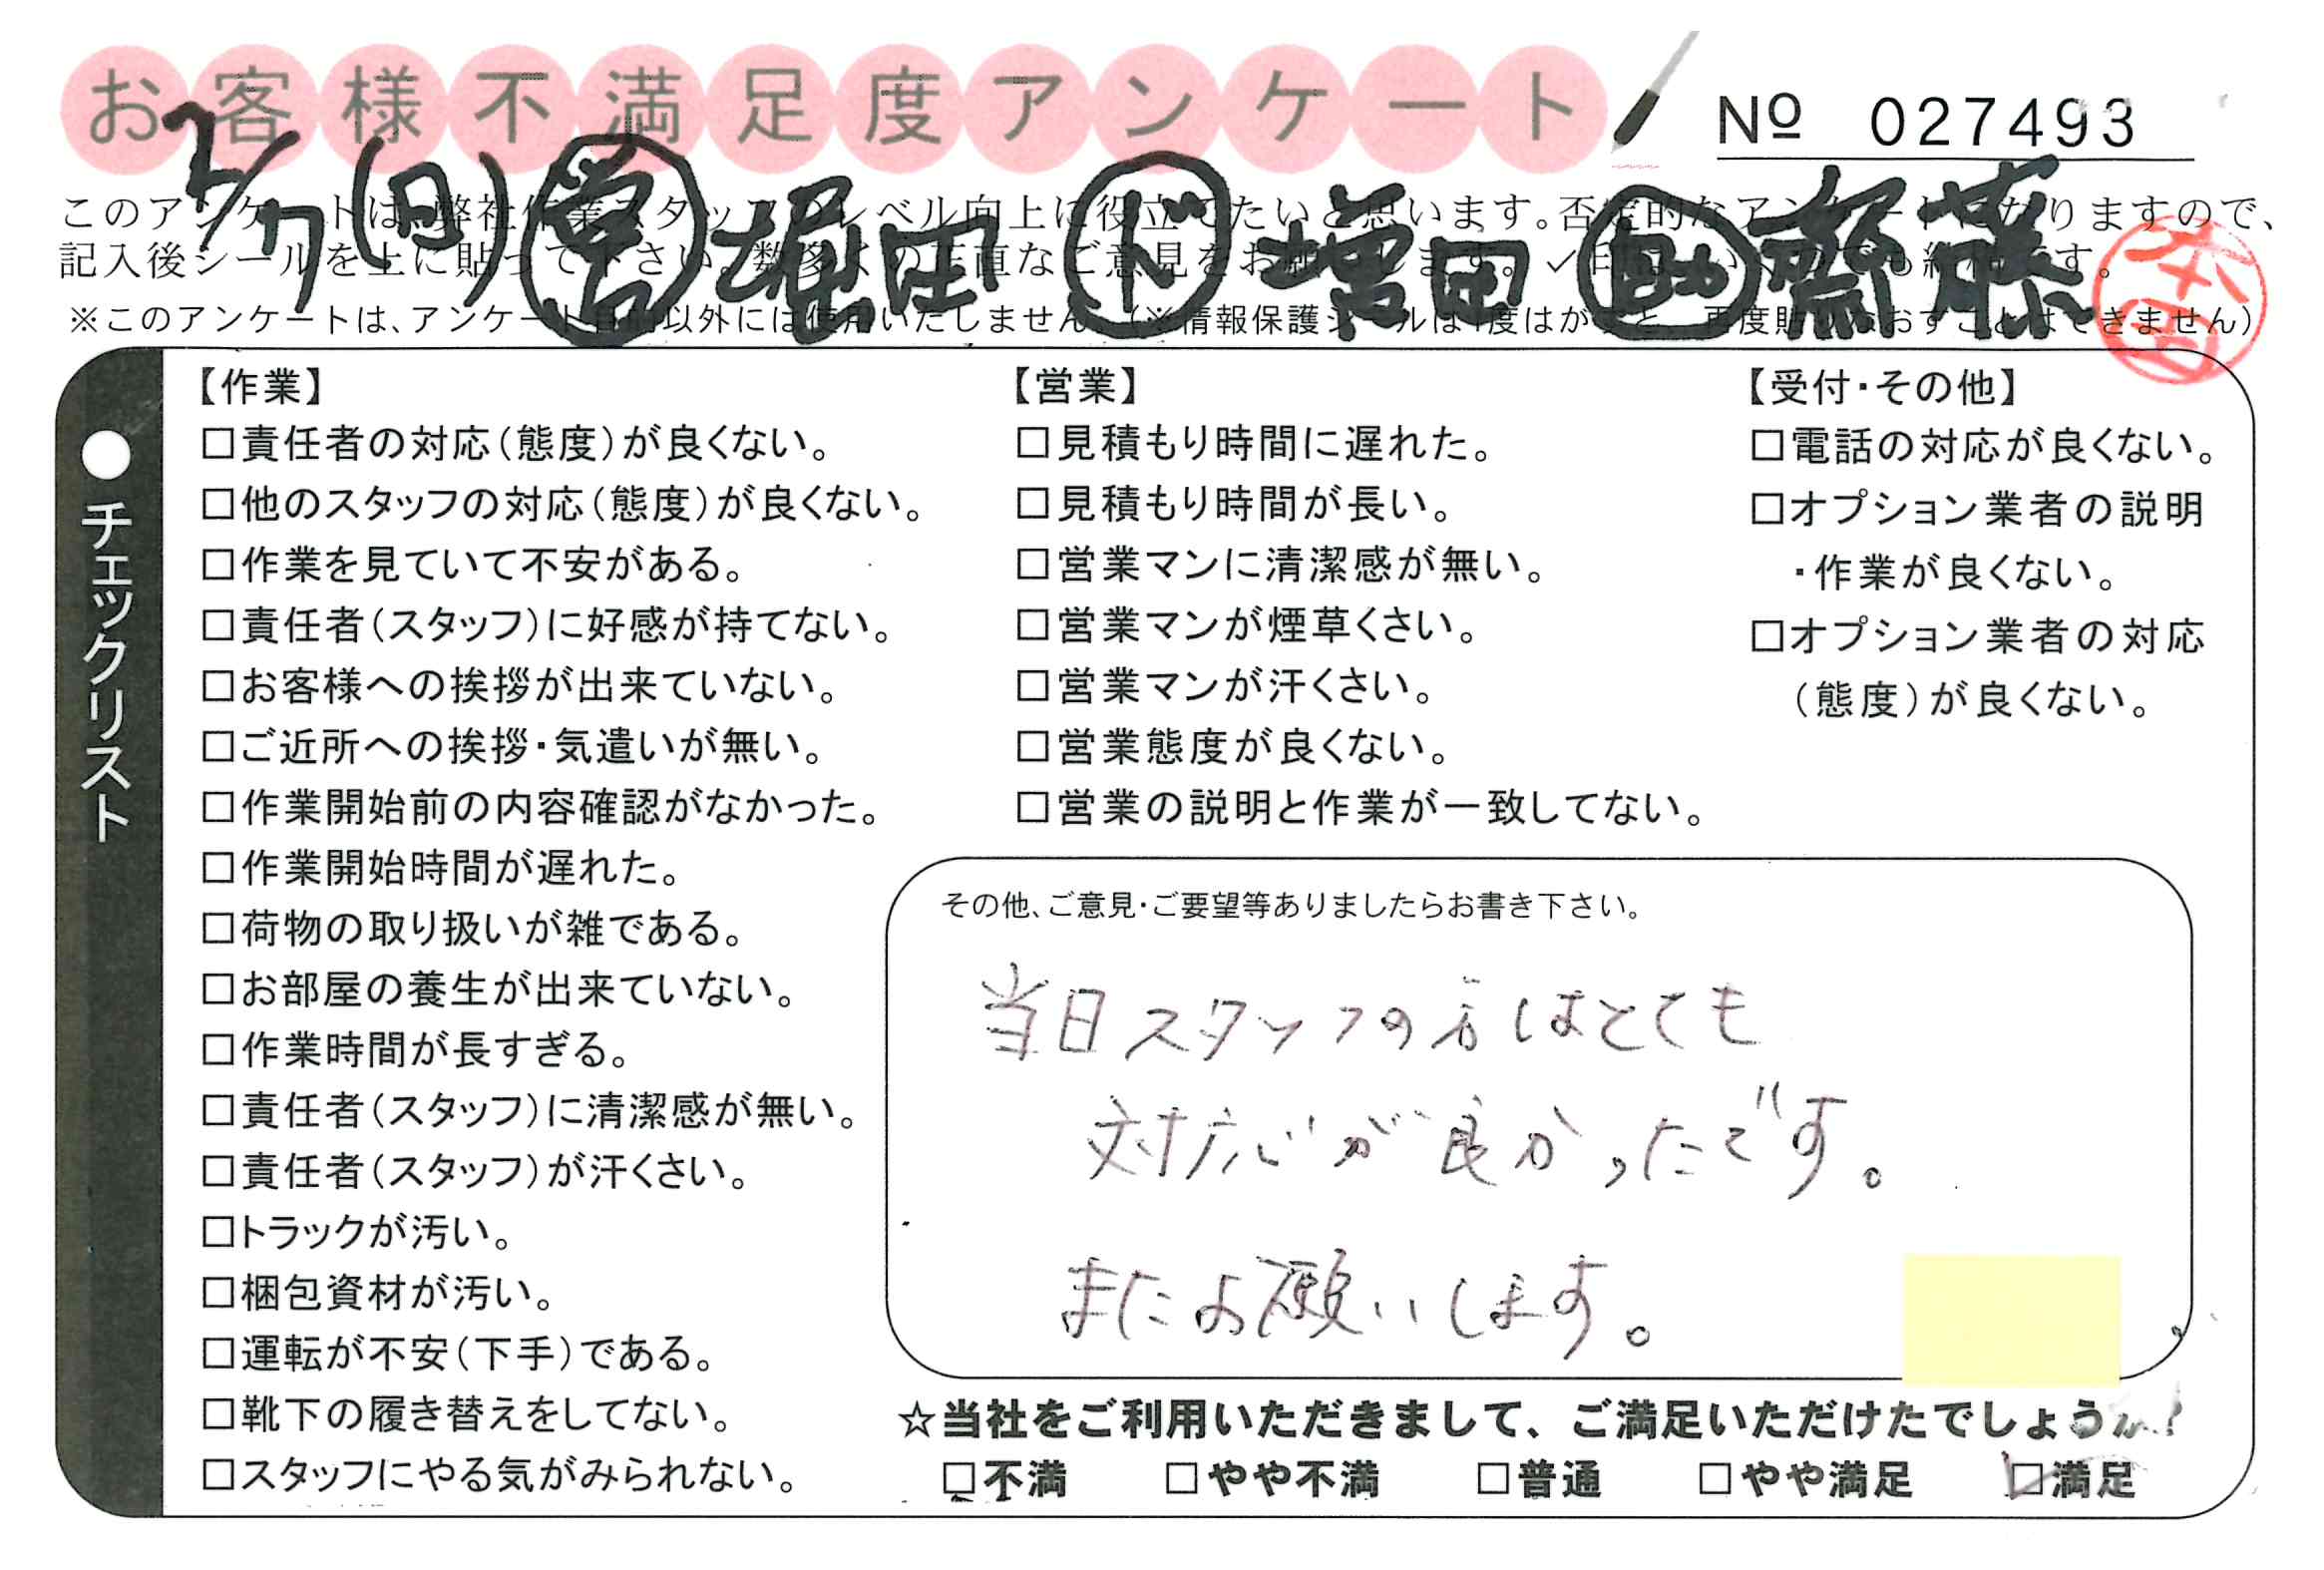 お客様不満足度アンケート
№ 027493
2/7(日) 営 堀田 ド 増田 助 齋藤
本宮
このアンケートは、弊社作業スタッフのレベル向上に役立てたいと思います。否定的なアンケートになりますので、
記入後シールを上に貼って下さい。数多くの正直なご意見をお願いします。✓印はいくつでも結構です。
※このアンケートは、アンケート目的以外には使用いたしません。(※情報保護シールは1度はがすと、再度貼りなおすことはできません)
●チェックリスト
【作業】
□責任者の対応(態度)が良くない。
□他のスタッフの対応(態度)が良くない。
□作業を見ていて不安がある。
□責任者(スタッフ)に好感が持てない。
□お客様への挨拶が出来ていない。
□ご近所への挨拶・気遣いが無い。
□作業開始前の内容確認がなかった。
□作業開始時間が遅れた。
□荷物の取り扱いが雑である。
□お部屋の養生が出来ていない。
□作業時間が長すぎる。
□責任者(スタッフ)に清潔感が無い。
□責任者(スタッフ)が汗くさい。
□トラックが汚い。
□梱包資材が汚い。
□運転が不安(下手)である。
□靴下の履き替えをしてない。
□スタッフにやる気がみられない。
【営業】
□見積もり時間に遅れた。
□見積もり時間が長い。
□営業マンに清潔感が無い。
□営業マンが煙草くさい。
□営業マンが汗くさい。
□営業態度が良くない。
□営業の説明と作業が一致してない。
【受付・その他】
□電話の対応が良くない。
□オプション業者の説明
・作業が良くない。
□オプション業者の対応
(態度)が良くない。
その他、ご意見・ご要望等ありましたらお書き下さい。
当日スタッフの方はとても
対応が良かったです。
またお願いします。
☆当社をご利用いただきまして、ご満足いただけたでしょうか?
□不満 □やや不満 □普通 □やや満足 ☑満足